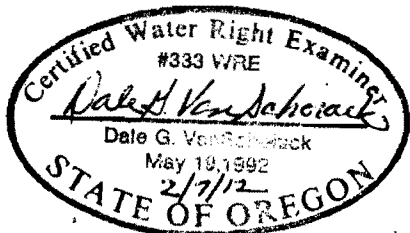 Certified Water Right Examiner
#333 WRE
Dale G. VanSchoiack
Dale G. VanSchoiack
May 19, 1992
2/7/12
STATE OF OREGON